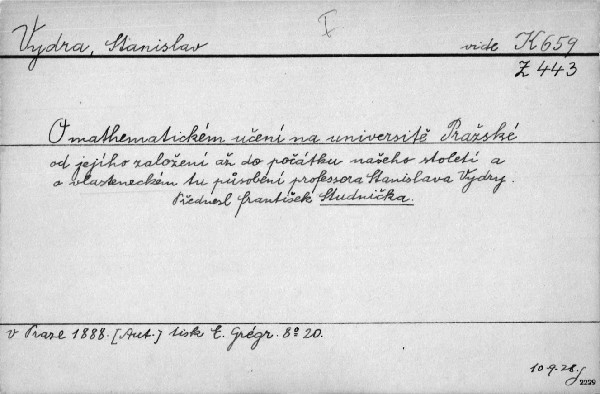 I
Vydra, Stanislav vide K659
Z 443
O mathematickém učení na universitě Pražské
od jejího založení až do počátku našeho století a
o vlasteneckém tu působení professora Stanislava Vydry.
Přednesl František Studnička.
v Praze 1888. [Aut.] tisk E. Grégr. 8º 20.
10.9.28.
2229